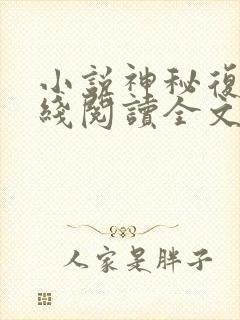 小說神秘復
綫閱讀全文
人家是胖子